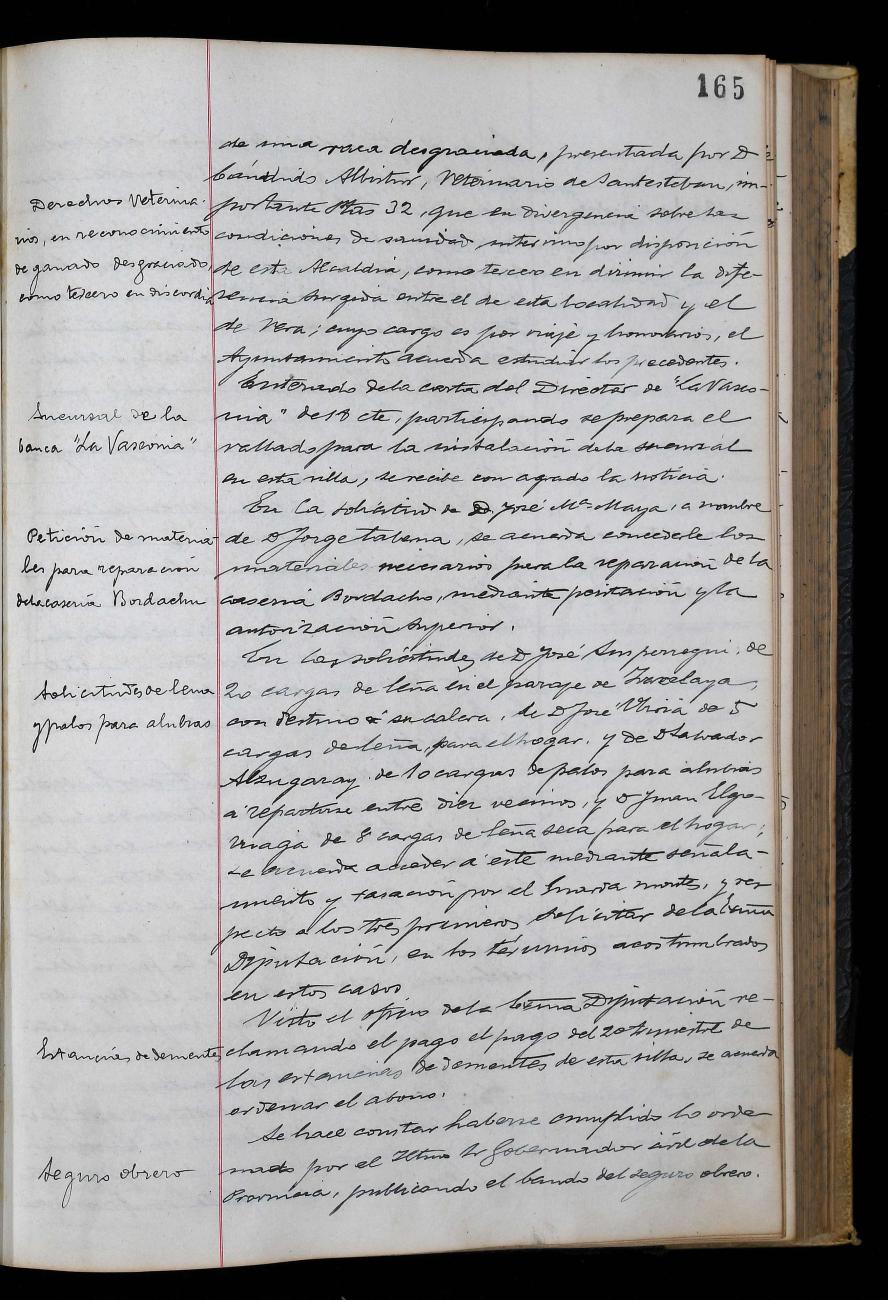 165
de una vaca desgraciada, presentada por D
Cándido Albistur, Veterinario de Santesteban, im-
Derechos Veterina-
rios, en reconocimiento
de ganado desgraciado,
como tercero en discordia
portante Ptas 32, que en divergencia sobre las
condiciones de sanidad intervino por disposición
de esta Alcaldía, como tercero en dirimir la dife-
rencia surgida entre el de esta localidad y el
de Vera; cuyo cargo es por viaje y honorarios, el
Ayuntamiento acuerda estudiar los precedentes.
Enterado de la carta del Director de "La Vasco-
Sucursal de la
banca "La Vasconia"
nia" del 8 cte, participando se prepara el
vallado para la instalación de la sucursal
en esta villa, se recibe con agrado la noticia.
En la solicitud de D José Mª Maya, a nombre
Petición de materia-
les para reparación
de la casería Bordacho
de D Jorge Tabena, se acuerda concederle los
materiales necesarios para la reparación de la
casería Bordacho, mediante peritación y la
autorización superior.
En las solicitudes de D José Sumperregui, de
Solicitudes de leña
y palos para alubias
20 cargas de leña en el paraje de
con destino a su calera, de D José de 5
cargas de leña, para el hogar, y de D Salvador
Alzugaray de 10 cargas de palos para alubias
á repartirse entre diez vecinos, y D Juan Elgo-
rriaga de 8 cargas de leña seca para el hogar;
se acuerda acceder a este mediante señala-
miento y tasación por el Guarda montes, y res-
pecto a los tres primeros solicitar de la Exma
Diputación, en los términos acostumbrados
en estos casos
Visto el oficio de la Exma Diputación re-
Estancias de dementes
clamando el pago el pago del 2º trimestre de
las estancias de dementes de esta villa, se acuerda
ordenar el abono.
Se hace constar haberse cumplido lo orde-
Seguro obrero
nado por el Iltmo Sr Gobernador civil de la
Provincia, publicando el bando del seguro obrero.